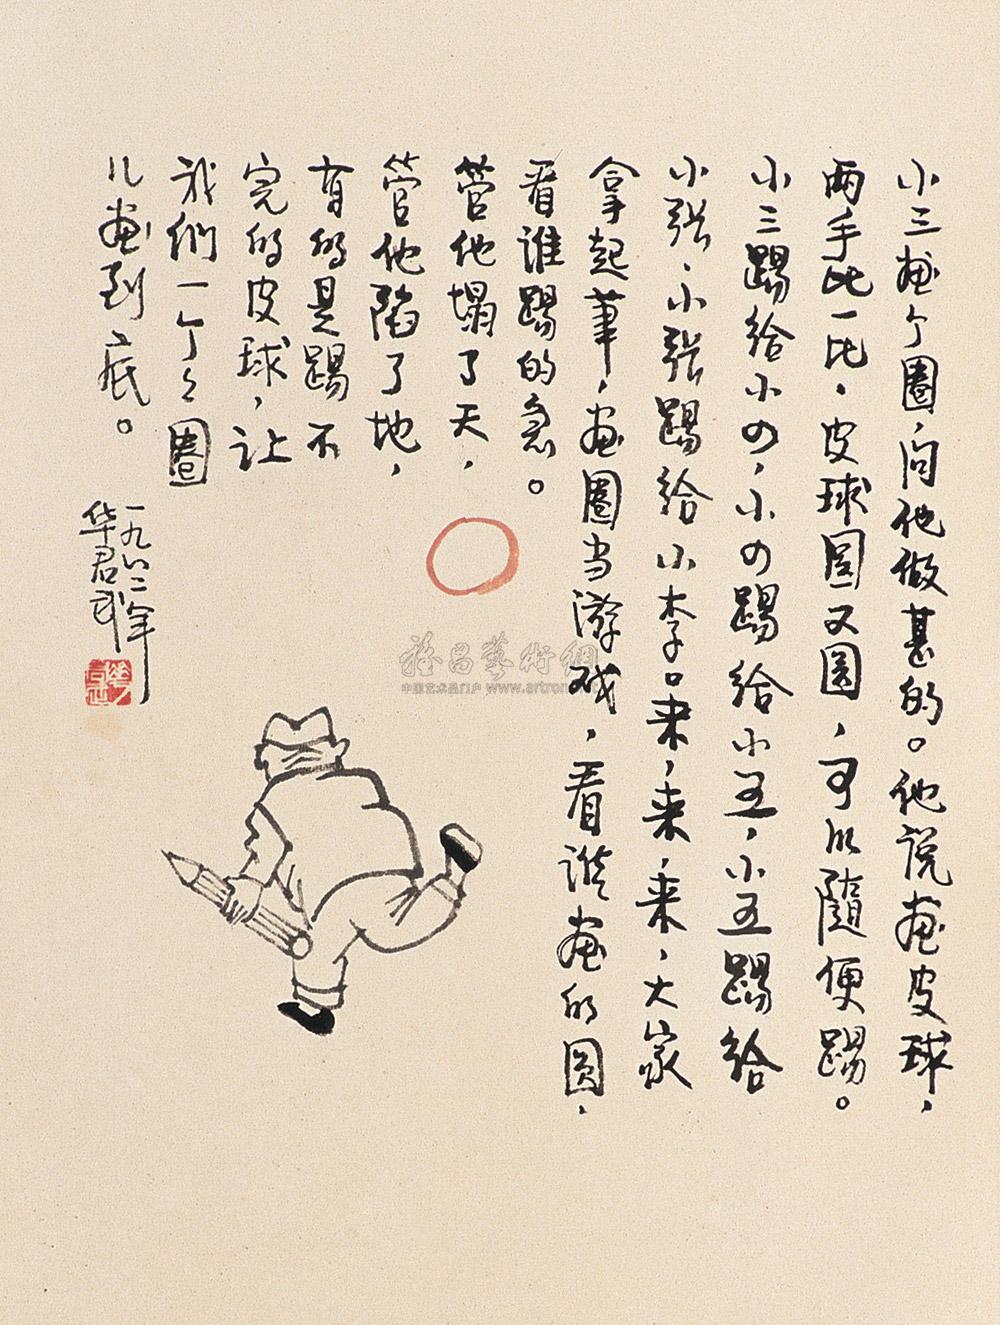 小三画个圈，问他做甚的。他说画皮球，
两手比一比，皮球圆又圆，可以随便踢。
小三踢给小四，小四踢给小五，小五踢给
小张，小张踢给小李。来，来，来，大家
拿起笔，画圈当游戏，看谁画的圆，
看谁踢的急。
管他塌了天，
管他陷了地，
有的是踢不
完的皮球，让
我们一个々圈
儿画到底。
一九八二年
华君武
雅昌藝術網
中国艺术品门户 www.artron.net